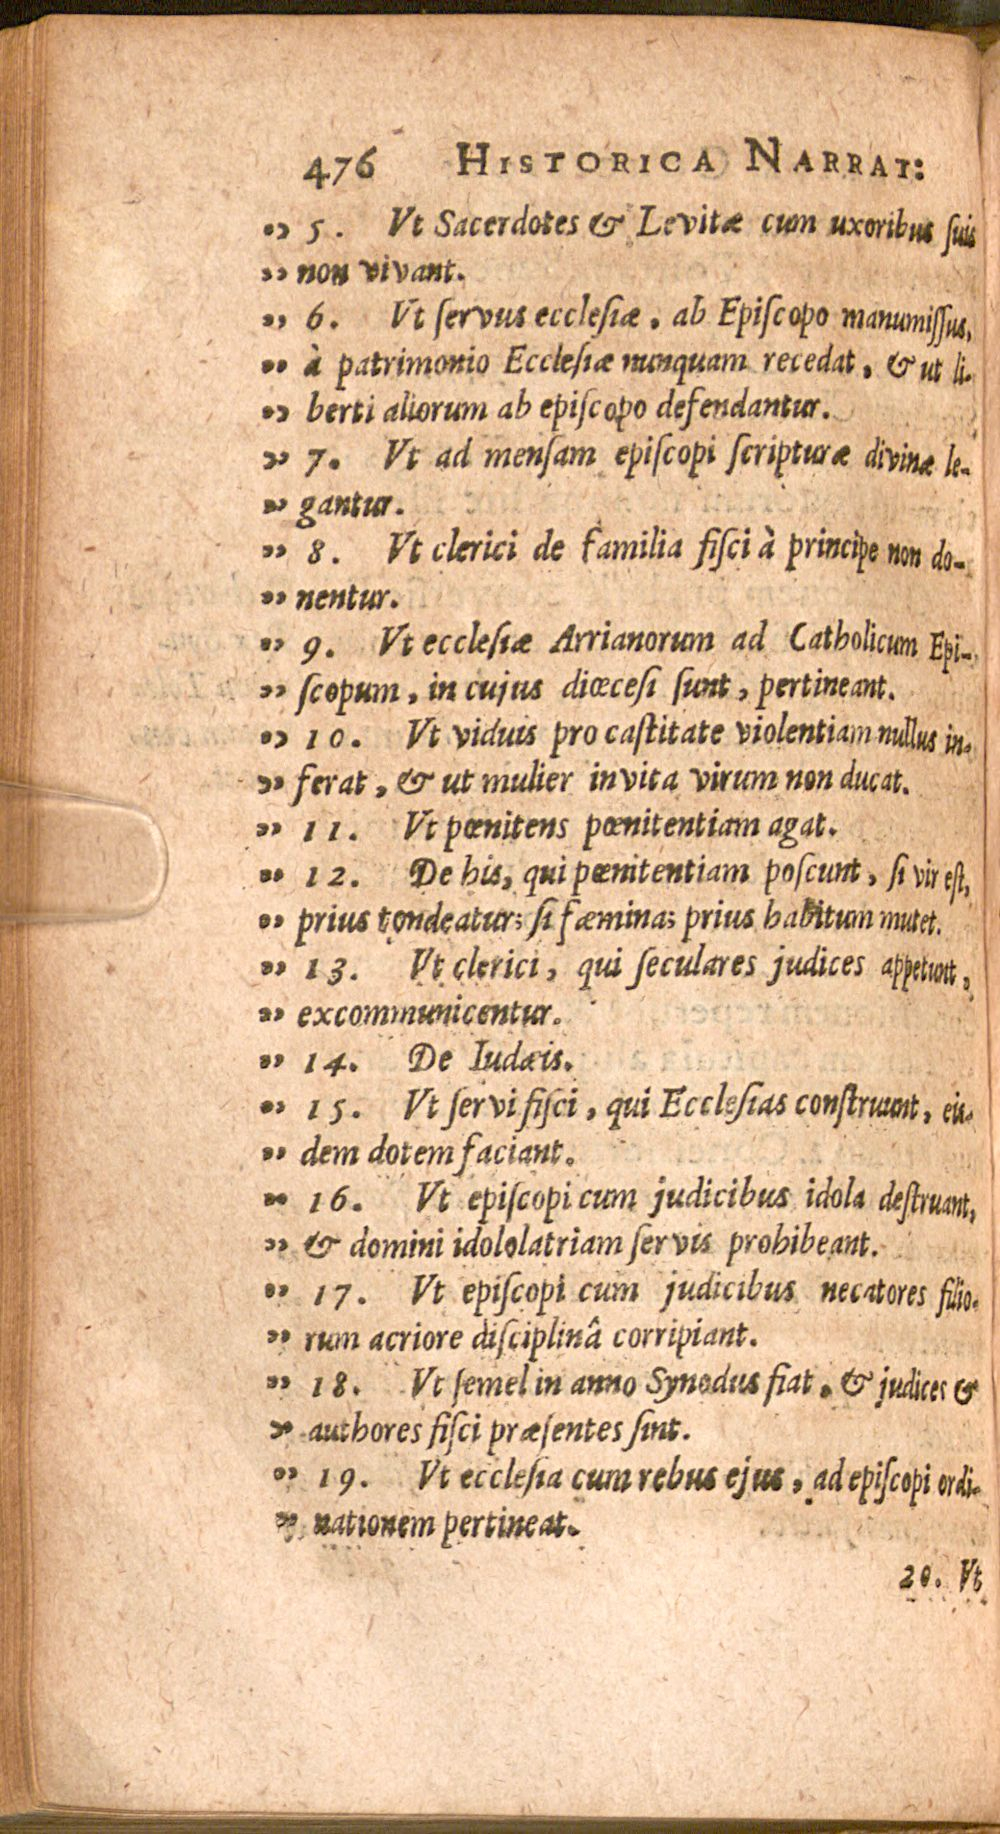 476 HISTORICA NARRAT:
„ 5. Vt Sacerdotes & Levitæ cum uxoribus ſuis
„ non vivant.
„ 6. Vt ſervus eccleſiæ, ab Epiſcopo manumiſſus,
„ à patrimonio Eccleſiæ nunquam recedat, & ut li-
„ berti aliorum ab epiſcopo defendantur.
„ 7. Vt ad menſam epiſcopi ſcripturæ divinæ le-
„ gantur.
„ 8. Vt clerici de familia fiſci à principe non do-
„ nentur.
„ 9. Vt eccleſiæ Arrianorum ad Catholicum Epi-
„ ſcopum, in cujus diœceſi ſunt, pertineant.
„ 10. Vt viduis pro caſtitate violentiam nullus in-
„ ferat, & ut mulier invita virum non ducat.
„ 11. Vt pœnitens pœnitentiam agat.
„ 12. De his, qui pœnitentiam poſcunt, ſi vir eſt,
„ prius tondeatur; ſi fæmina; prius habitum mutet.
„ 13. Vt clerici, qui ſeculares judices appetunt,
„ excommunicentur.
„ 14. De Iudæis.
„ 15. Vt ſervi fiſci, qui Eccleſias conſtruunt, eis-
„ dem dotem faciant.
„ 16. Vt epiſcopi cum judicibus idola deſtruant,
„ & domini idololatriam ſervis prohibeant.
„ 17. Vt epiſcopi cum judicibus necatores filio-
„ rum acriore diſciplinâ corripiant.
„ 18. Vt ſemel in anno Synodus fiat, & judices &
„ authores fiſci præſentes ſint.
„ 19. Vt eccleſia cum rebus ejus, ad epiſcopi ordi-
„ nationem pertineat.
20. Vt